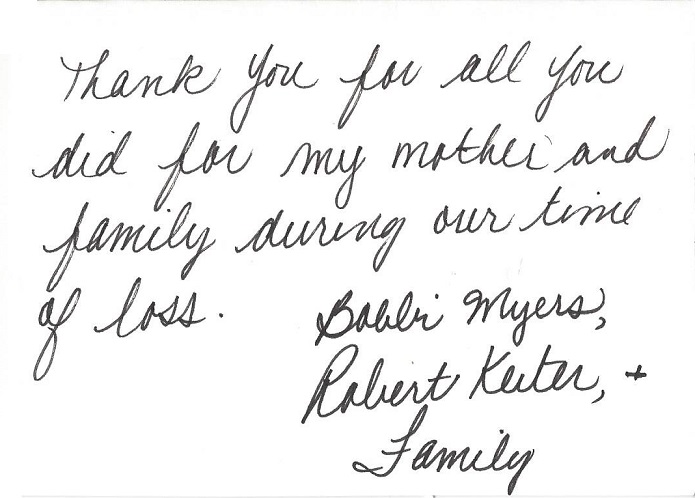 Thank you for all you
did for my mother and
family during our time
of loss.
Bobbi Myers,
Robert Keiter, +
Family